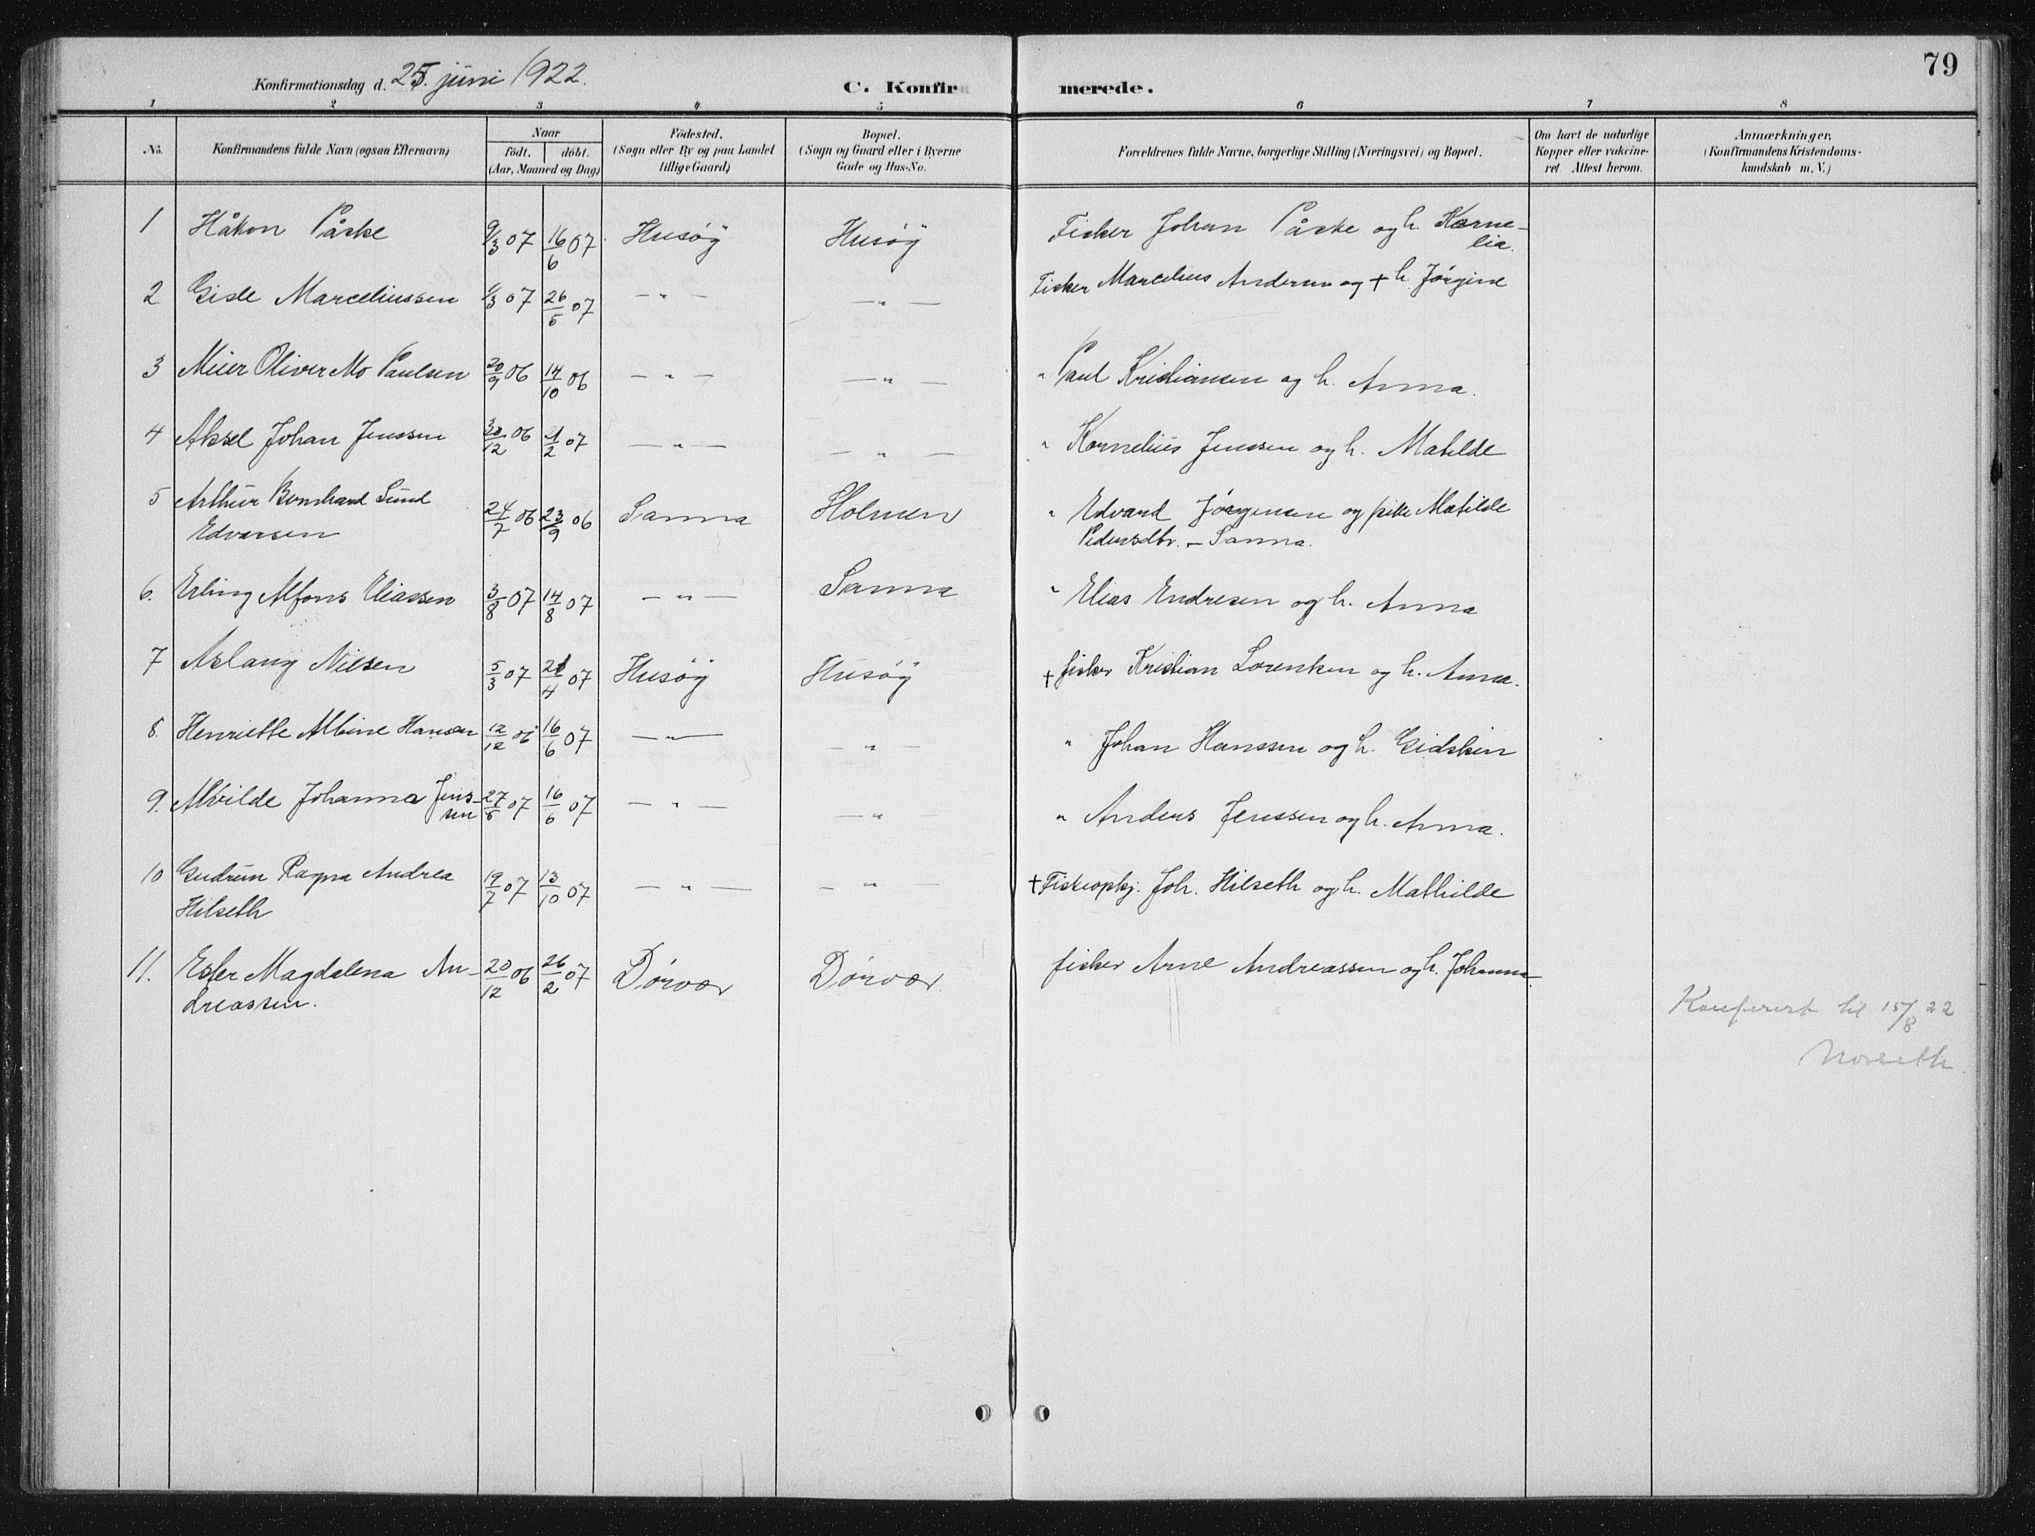 79
Konfirmationsdag d. 25. juni 1922.
C. Konfirmerede.
1 2 3 4 5 6 7 8
No.
Konfirmandens fulde Navn (ogsaa Efternavn)
Naar
født. døbt.
(Aar, Maaned og Dag)
Fødested.
(Sogn eller By og paa Landet
tillige Gaard)
Bopæl.
(Sogn og Gaard eller i Byerne
Gade og Hus-No.
Forældrenes fulde Navne, borgerlige Stilling (Næringsvei) og Bopæl.
Om havt de naturlige
Kopper eller vakcine-
ret Attest herom.
Anmærkninger.
(Konfirmandens Kristendoms-
kundskab m. V.)
1 Håkon Påske 9/3 07 16/6 07 Husøy Husøy Fisker Johan Påske og h. Korne-
lia.
2 Gisle Marceliussen 1/3 07 26/5 07 — " — — " — Fisker Marcelius Andersen og + h. Jørgine
3 Meier Oliver Mo Paulsen 20/9 06 14/10 06 — " — — " — " Paul Kristiansen og h. Anna.
4 Aksel Johan Jenssen 30/12 06 1/2 07 — " — — " — " Kornelius Jenssen og h. Matilde
5 Arthur Bernhard Sund
Edvarsen 24/7 06 23/9 06 Sanna Holmen " Edvard Jørgensen og pike Matilde
Pedersdtr. – Sanna.
6. Erling Alfons Eliassen 3/8 07 14/8 07 — " — Sanna " Elias Endresen og h. Anna
7 Aslaug Nilsen 5/3 07 21/4 07 Husøy Husøy + fisker Kristian Lorentsen og h. Anna.
8. Henriette Albine Hansen 12/12 06 16/6 07 — " — — " — " Johan Hanssen og h. Gidskin
9. Alvilde Johanna Jens-
sen 27/5 07 16/6 07 — " — — " — " Anders Jenssen og h. Anna.
10 Gudrun Ragna Andrea
Hilseth 19/7 07 13/10 07 — " — — " — + Fiskeopkj. Joh. Hilseth og h. Mathilde
11. Ester Magdalena An-
dreassen. 20/12 06 26/2 07 Dørvær Dørvær. fisker Arne Andreassen og h. Johanna
Konferert til 15/8 22